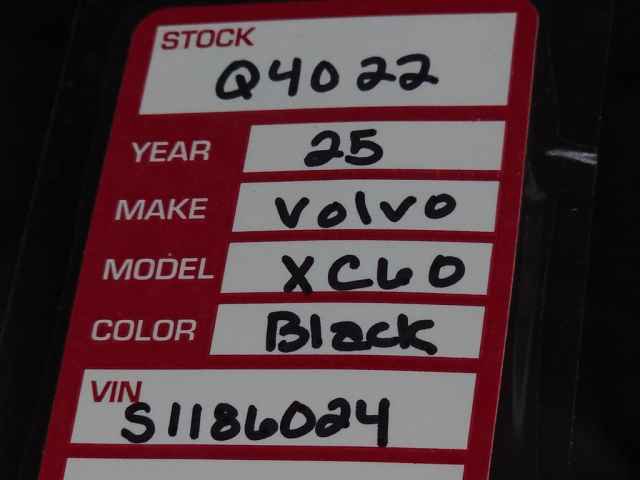 STOCK
Q4022
YEAR 25
MAKE Volvo
MODEL XC60
COLOR Black
VIN
S1186024